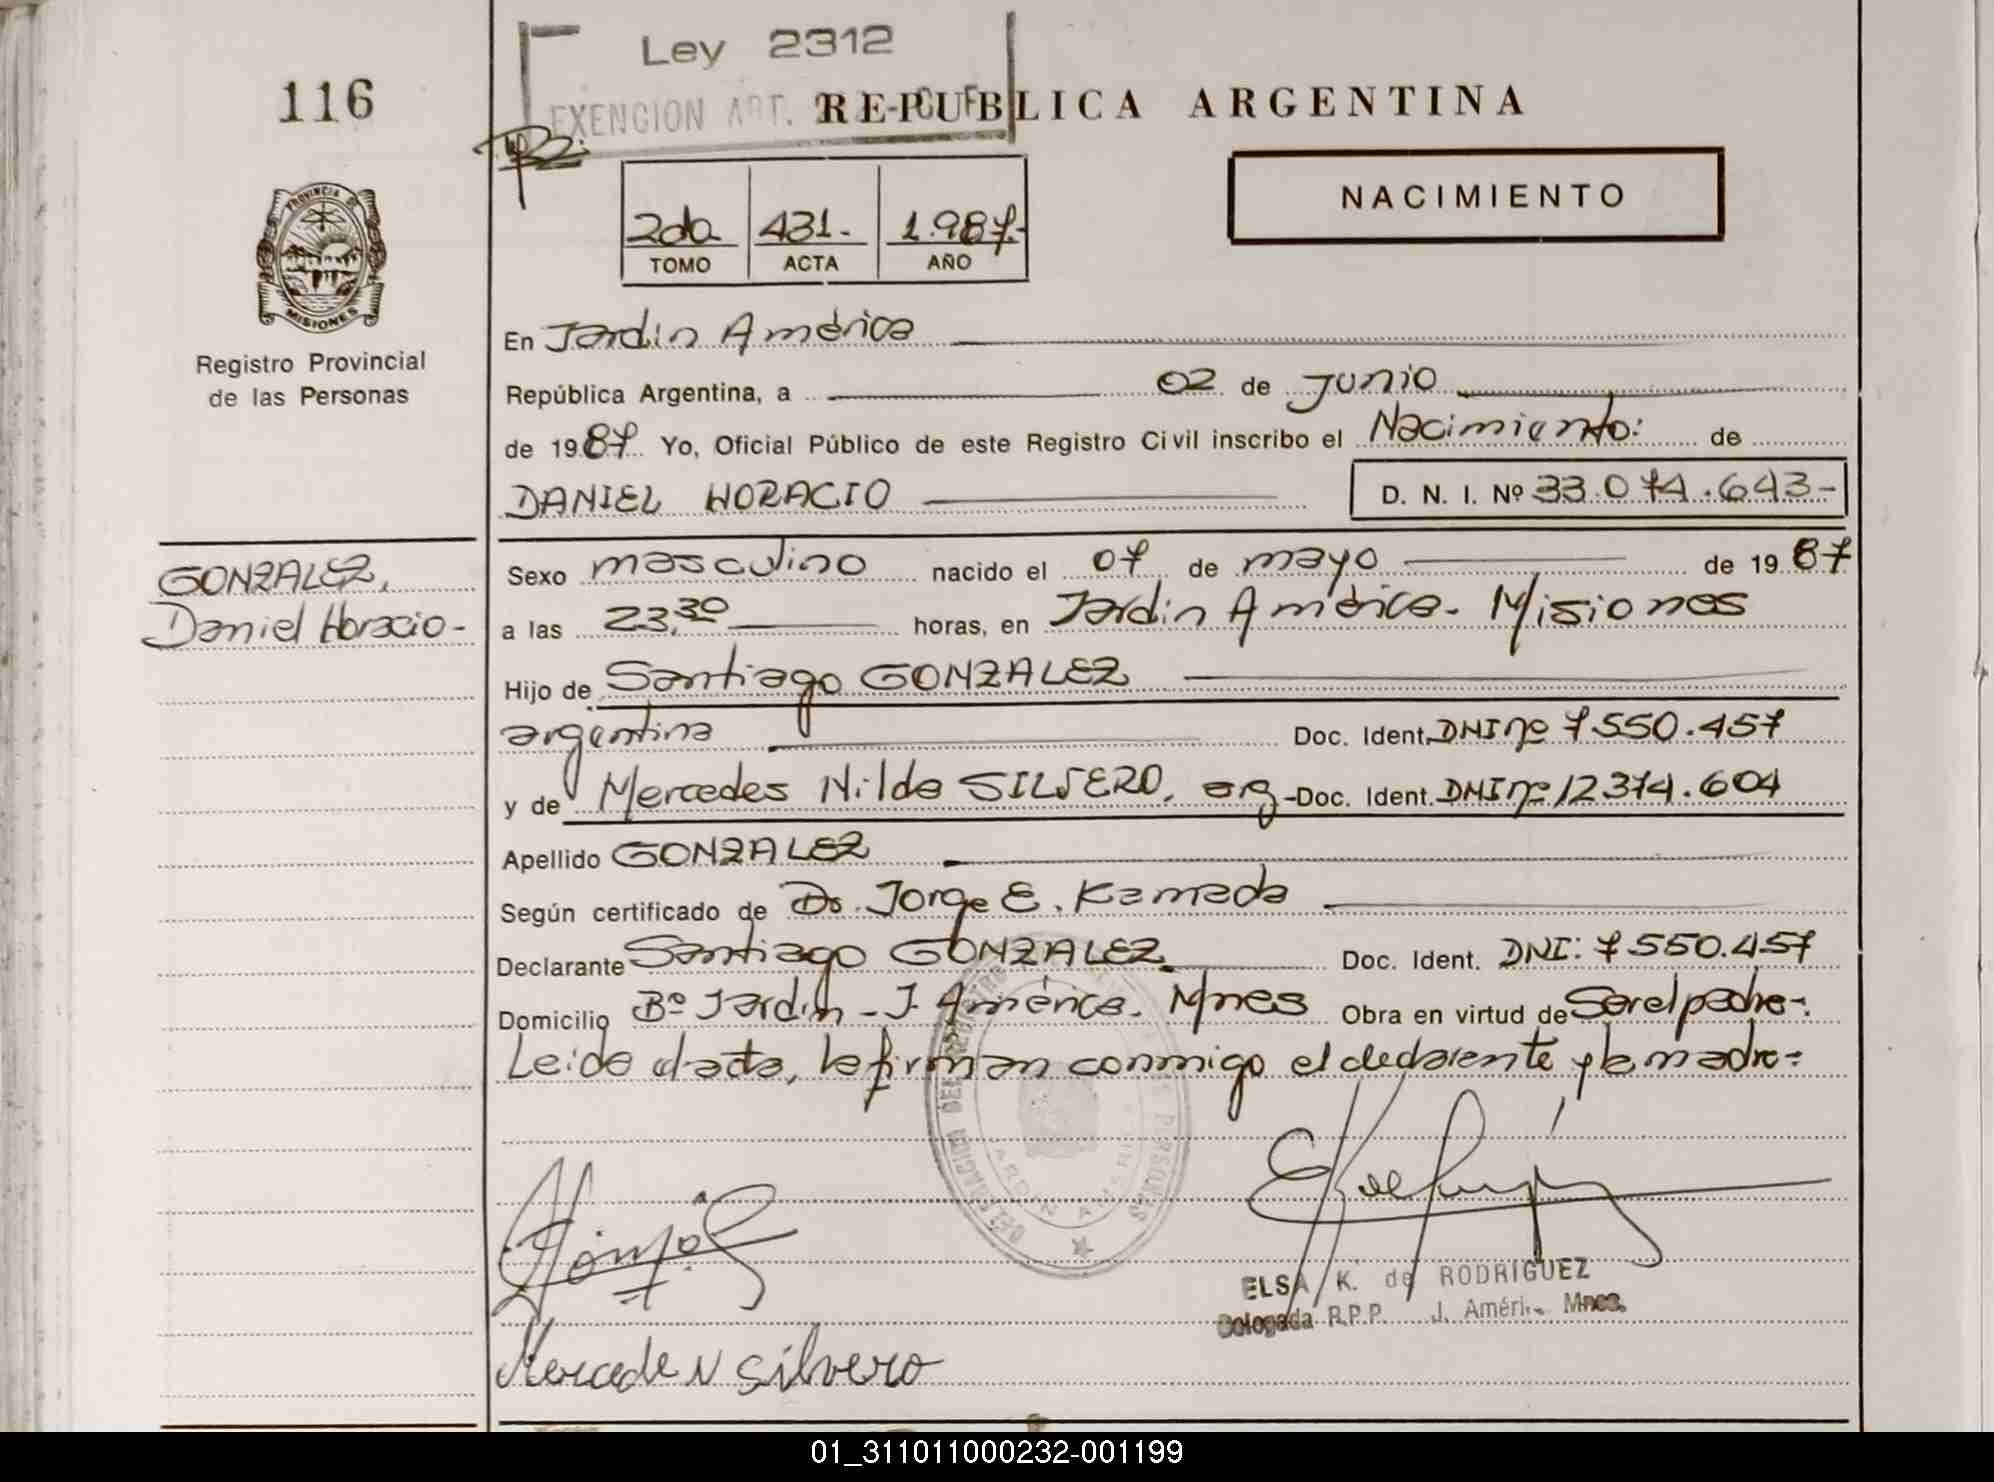 Ley 2312
EXENCION ART.
116
REPUBLICA ARGENTINA
PROVINCIA DE
MISIONES
NACIMIENTO
2da 431.- 1.987.-
TOMO ACTA AÑO
Registro Provincial
de las Personas
En Jardín América
República Argentina, a 02 de Junio
de 1987 Yo, Oficial Público de este Registro Civil inscribo el Nacimiento: de
DANIEL HORACIO D. N. I. Nº 33.074.643-
GONZALEZ,
Daniel Horacio-
Sexo masculino nacido el 07 de mayo de 1987
a las 23,30 horas, en Jardín América. Misiones
Hijo de Santiago GONZALEZ
argentina Doc. Ident. DNI nº 7550.457
y de Mercedes Nilda SILVERO, arg- Doc. Ident. DNI nº 12374.604
Apellido GONZALEZ
Según certificado de Dr. Jorge E. Kamada
Declarante Santiago GONZALEZ. Doc. Ident. DNI: 7550.457
Domicilio Bº Jardín - J. América. Mnes Obra en virtud de Ser el padre-:
Leida el acta, la firman conmigo el declarante y la madre-:
ELSA K. de RODRIGUEZ
Delegada R.P.P. J. Améri. Mnes.
Mercede N Silvero
01_311011000232-001199